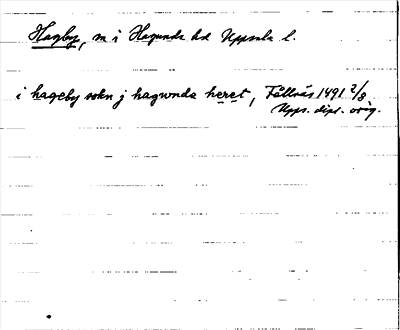 Hagby, sn i Hagunda hd Uppsala l.
i hageby sokn j hagwnda heret, Fållnäs 1491 2/8
Upps. dipl. orig.